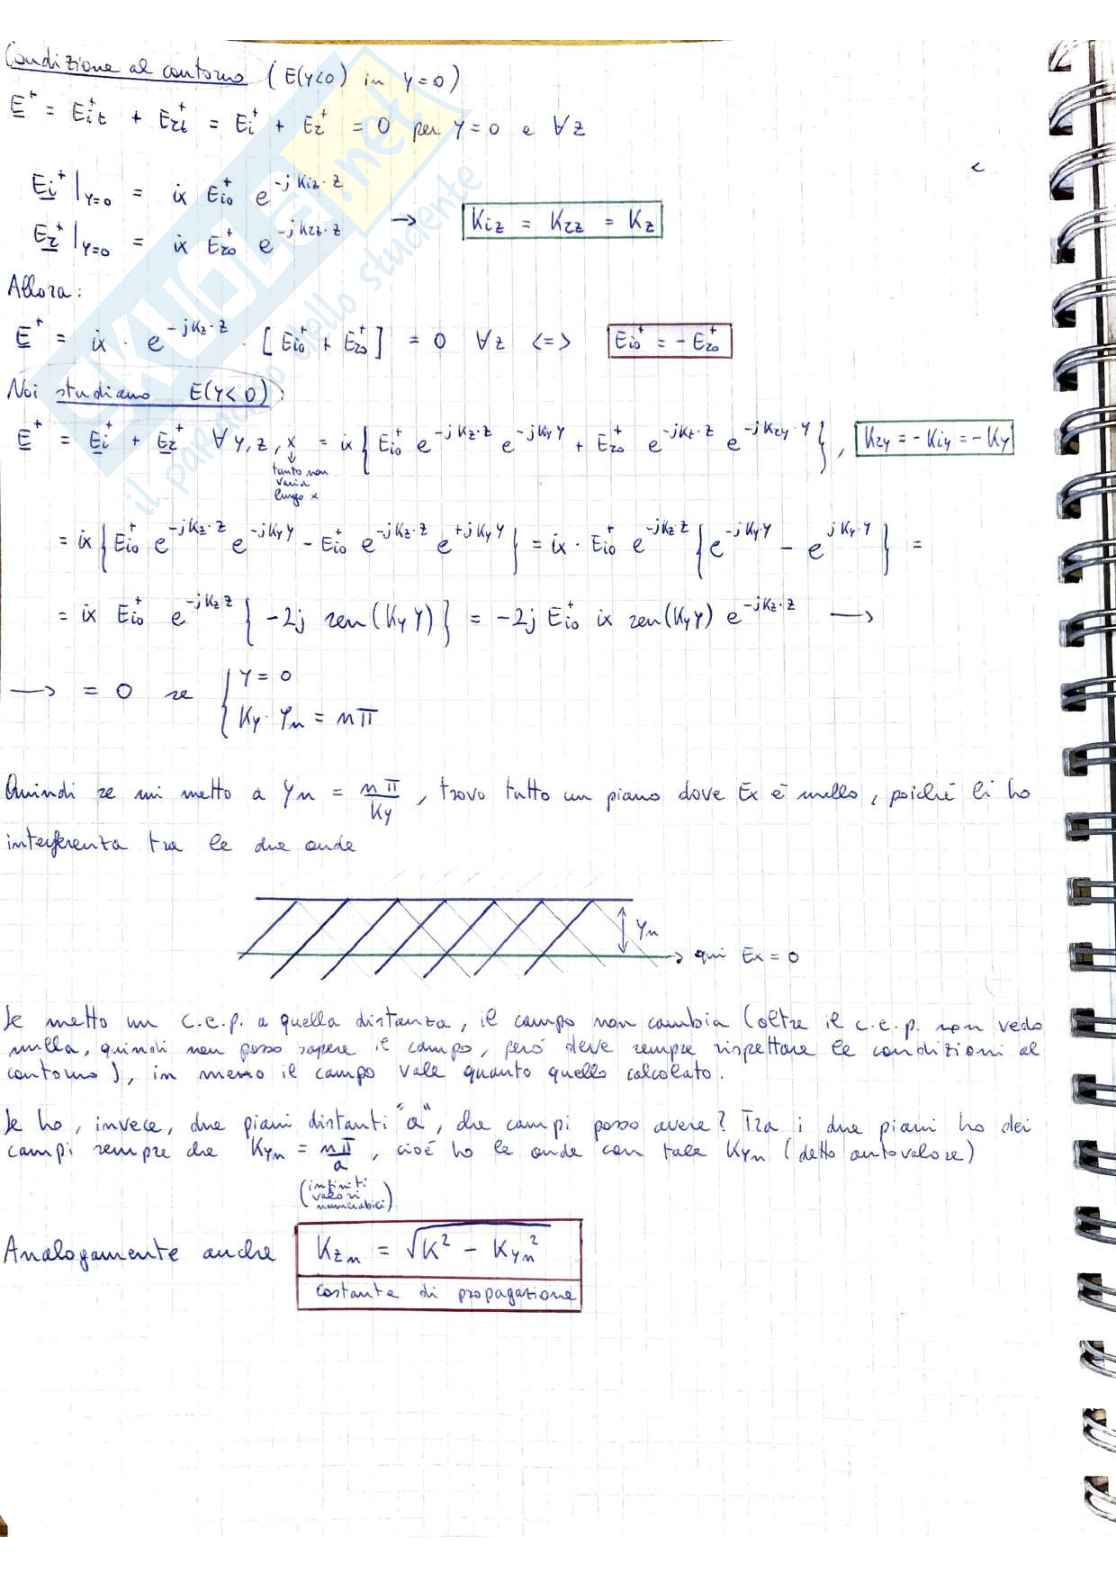 Condizione al contorno (E(y<0) in y=0)
E⁺ = Eit⁺ + Ert⁺ = Ei⁺ + Er⁺ = 0 per y=0 e ∀z
Ei⁺|y=0 = ix Eio⁺ e^(-j Kiz·z)
Er⁺|y=0 = ix Ero⁺ e^(-j Krz·z) → Kiz = Krz = Kz
Allora:
E⁺ = ix · e^(-jKz·z) · [Eio⁺ + Ero⁺] = 0 ∀z <=> Eio⁺ = - Ero⁺
Noi studiamo E(y<0):
E⁺ = Ei⁺ + Er⁺ ∀ y, z, x = ix { Eio⁺ e^(-jKz·z) e^(-jKy y) + Ero⁺ e^(-jKz·z) e^(-jKry·y) }, Kry = -Kiy = -Ky
↓
tanto non
varia
lungo x
= ix { Eio⁺ e^(-jKz·z) e^(-jKy y) - Eio⁺ e^(-jKz·z) e^(+jKy y) } = ix · Eio⁺ e^(-jKz z) { e^(-jKy y) - e^(jKy·y) } =
= ix Eio⁺ e^(-jKz z) { -2j sen(Ky y) } = -2j Eio⁺ ix sen(Ky y) e^(-jKz·z) →
→ = 0 se { y = 0
Ky · yn = nπ
Quindi se mi metto a yn = nπ/Ky, trovo tutto un piano dove Ex è nullo, poiché lì ho
interferenza tra le due onde
yn
qui Ex = 0
Se metto un c.e.p. a quella distanza, il campo non cambia (oltre il c.e.p. non vedo
nulla, quindi non posso sapere il campo, però deve sempre rispettare le condizioni al
contorno), in mezzo il campo vale quanto quello calcolato.
Se ho, invece, due piani distanti "a", che campi posso avere? Tra i due piani ho dei
campi sempre che Kyn = nπ/a, cioé ho le onde con tale Kyn (detto autovalore)
(infiniti
valori
numerabili)
Analogamente anche Kzn = √(K² - Kyn²)
costante di propagazione
SKUOLA.net
il paradiso dello studente